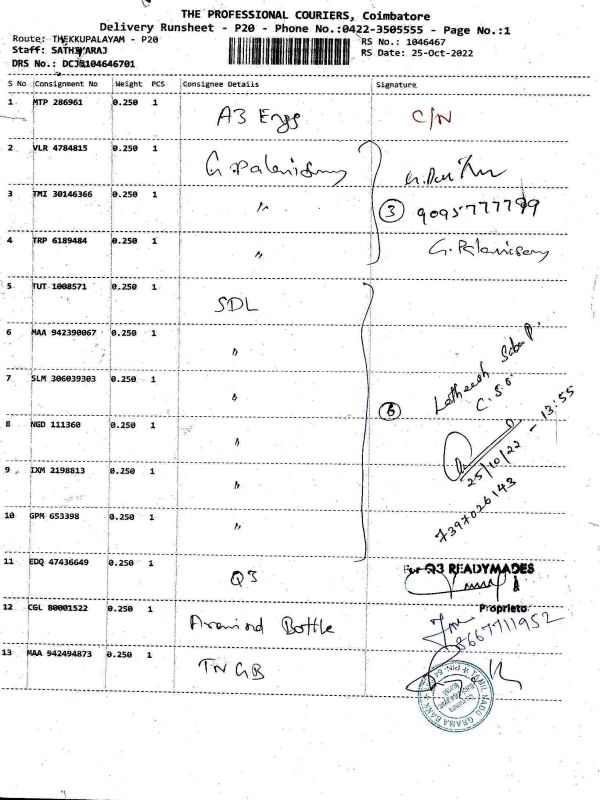 THE PROFESSIONAL COURIERS, Coimbatore
Delivery Runsheet - P20 - Phone No.:0422-3505555 - Page No.:1
Route: THEKKUPALAYAM - P20
RS No.: 1046467
Staff: SATHYARAJ
RS Date: 25-Oct-2022
DRS No.: DCJB104646701
S No Consignment No Weight PCS Consignee Details Signature
1 MTP 286961 0.250 1 A3 Engg C/N
2 VLR 4784815 0.250 1 G.Palanisamy
3 TMI 30146366 0.250 1 〃 3 9095777799
4 TRP 6189484 0.250 1 〃 G.Palanisamy
5 TUT 1008571 0.250 1 SDL
6 MAA 942390067 0.250 1 〃
7 SLM 306039303 0.250 1 〃
6 C.S.O.
8 NGD 111360 0.250 1 〃
25/10/22 - 13:55
9 IXM 2198813 0.250 1 〃
7397026143
10 GPM 653398 0.250 1 〃
11 EDQ 47436649 0.250 1 Q3 For Q3 READYMADES
Proprieto
12 CGL 80001522 0.250 1 Aravind Bottle 8667711952
13 MAA 942494873 0.250 1 TNGB
TAMIL NADU GRAMA BANK